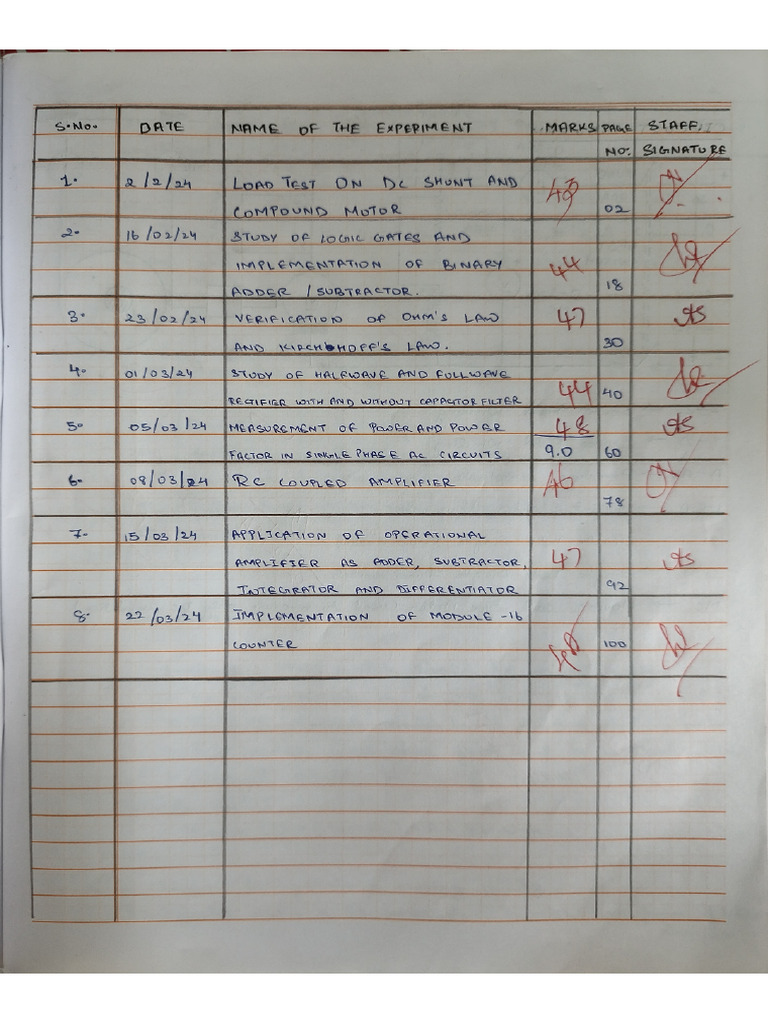 S.No. DATE NAME OF THE EXPERIMENT MARKS PAGE STAFF
NO. SIGNATURE
1. 2/2/24 LOAD TEST ON DC SHUNT AND
COMPOUND MOTOR 02
2. 16/02/24 STUDY OF LOGIC GATES AND
IMPLEMENTATION OF BINARY 44
ADDER / SUBTRACTOR. 18
3. 23/02/24 VERIFICATION OF OHM'S LAW 47
AND KIRCHHOFF'S LAW. 30
4. 01/03/24 STUDY OF HALFWAVE AND FULLWAVE
RECTIFIER WITH AND WITHOUT CAPACITOR FILTER 44 40
5. 05/03/24 MEASUREMENT OF POWER AND POWER 48
FACTOR IN SINGLE PHASE AC CIRCUITS 9.0 60
6. 08/03/24 RC COUPLED AMPLIFIER 46
78
7. 15/03/24 APPLICATION OF OPERATIONAL
AMPLIFIER AS ADDER, SUBTRACTOR, 47
INTEGRATOR AND DIFFERENTIATOR 92
8. 22/03/24 IMPLEMENTATION OF MODULE -16
COUNTER 100